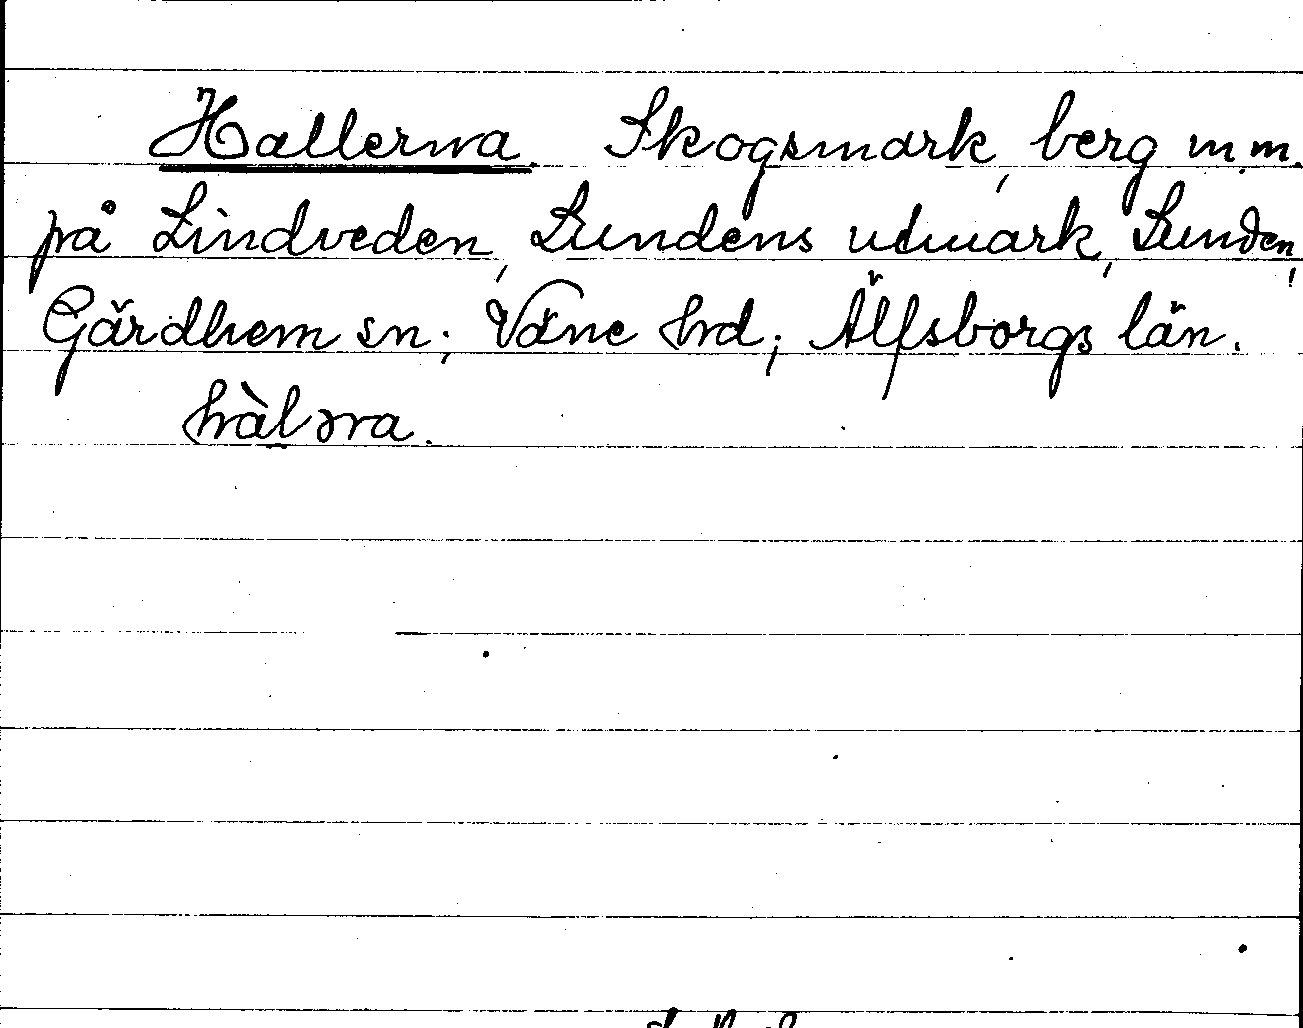 Hallerna. Skogsmark, berg m.m.
på Lindveden, Lundens utmark, Lunden,
Gärdhem sn; Väne hd; Älfsborgs län.
hàləra.